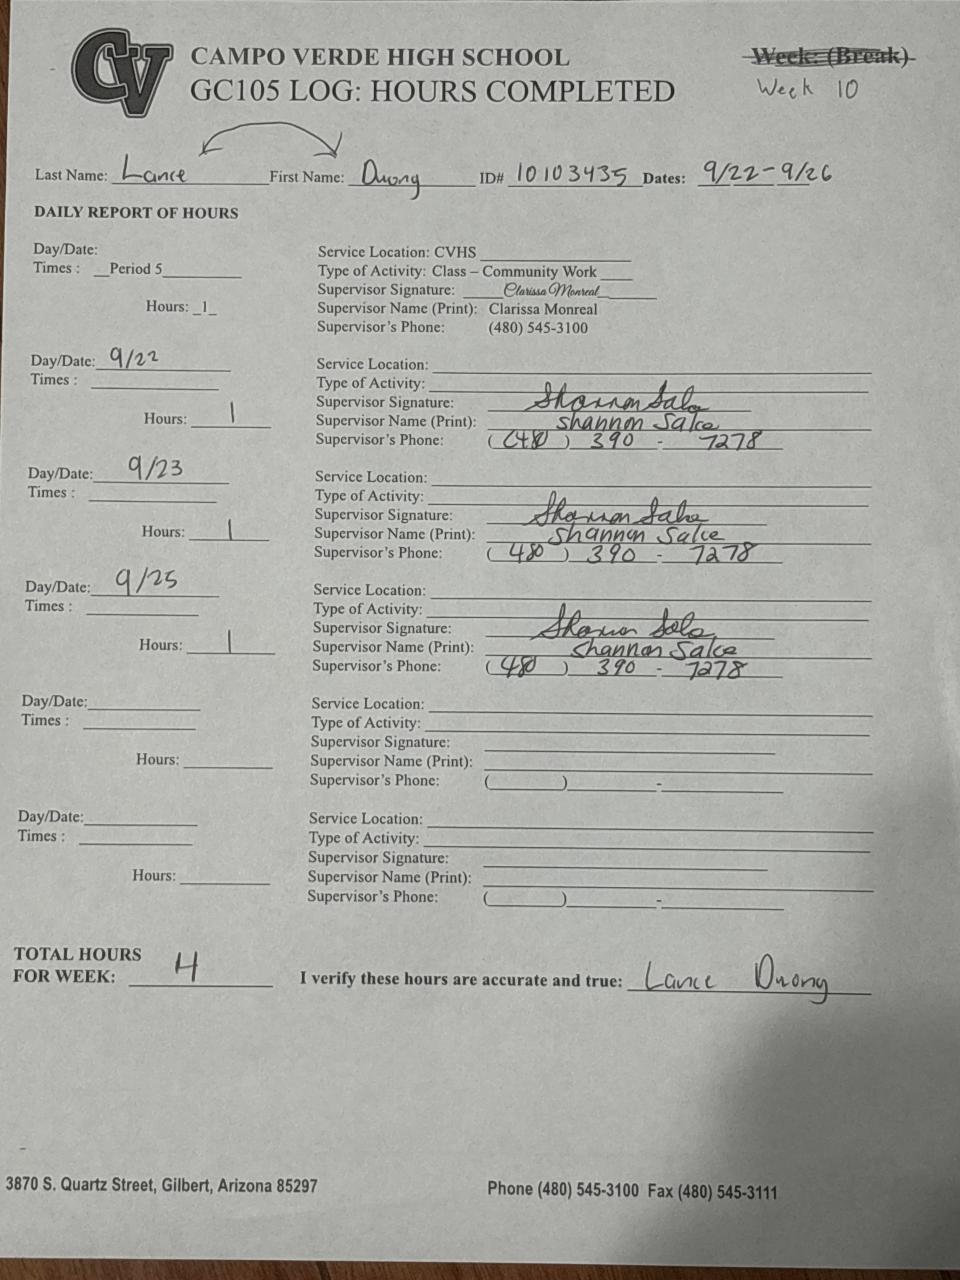 CV
CAMPO VERDE HIGH SCHOOL
Week: (Break)
GC105 LOG: HOURS COMPLETED
Week 10
Last Name: Lance First Name: Duong ID# 10103435 Dates: 9/22-9/26
DAILY REPORT OF HOURS
Day/Date:
Times : Period 5
Hours: 1
Service Location: CVHS
Type of Activity: Class – Community Work
Supervisor Signature: Clarissa Monreal
Supervisor Name (Print): Clarissa Monreal
Supervisor's Phone: (480) 545-3100
Day/Date: 9/22
Times :
Hours: 1
Service Location:
Type of Activity:
Supervisor Signature: Shannon
Supervisor Name (Print): Shannon
Supervisor's Phone: (480) 390 - 7278
Day/Date: 9/23
Times :
Hours: 1
Service Location:
Type of Activity:
Supervisor Signature: Shannon
Supervisor Name (Print): Shannon
Supervisor's Phone: (480) 390 - 7278
Day/Date: 9/25
Times :
Hours: 1
Service Location:
Type of Activity:
Supervisor Signature: Shannon
Supervisor Name (Print): Shannon
Supervisor's Phone: (480) 390 - 7278
Day/Date:
Times :
Hours:
Service Location:
Type of Activity:
Supervisor Signature:
Supervisor Name (Print):
Supervisor's Phone: ( ) -
Day/Date:
Times :
Hours:
Service Location:
Type of Activity:
Supervisor Signature:
Supervisor Name (Print):
Supervisor's Phone: ( ) -
TOTAL HOURS
FOR WEEK: 4
I verify these hours are accurate and true: Lance Duong
3870 S. Quartz Street, Gilbert, Arizona 85297
Phone (480) 545-3100 Fax (480) 545-3111